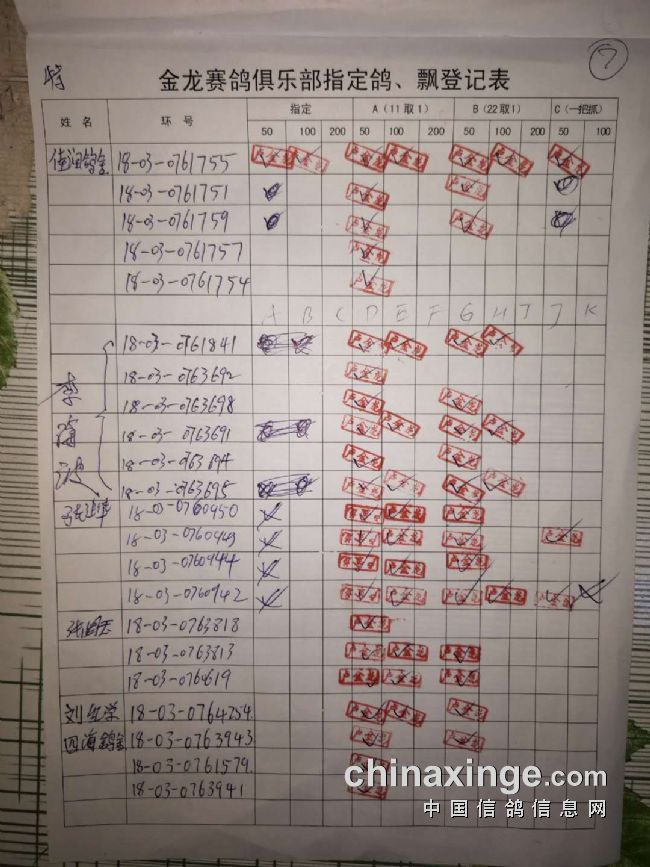 特
7
金龙赛鸽俱乐部指定鸽、飘登记表
姓名 环号 指定 A(11取1) B(22取1) C(一把抓)
50 100 200 50 100 200 50 100 200 50 100
18-03-0761755
18-03-0761751
18-03-0761759
18-03-0761757
18-03-0761754
A B C D E F G H I J K
18-03-0761841
18-03-0763692
李 18-03-0763698
18-03-0763691
18-03-
18-03-0763695
18-03-0760950
18-03-0760949
18-03-0760944
18-03-0760942
18-03-0763818
18-03-0763813
18-03-0764619
18-03-0764254
四海鸽舍 18-03-0763943
18-03-0761579
18-03-0763941
chinaxinge.com
中国信鸽信息网